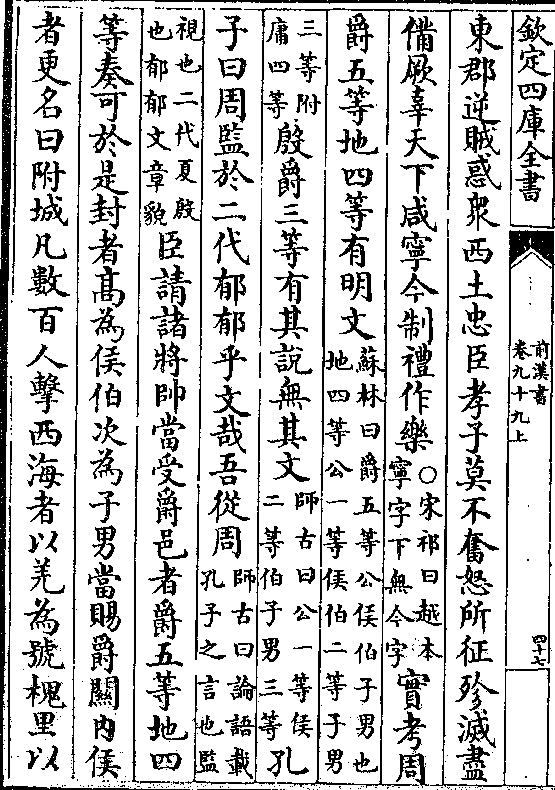 欽定四庫全書
前漢書
卷九十九上
四十七
東郡逆賊惑衆西土忠臣孝子莫不奮怒所征殄滅盡
備厥辜天下咸寧今制禮作樂○宋祁曰越本寧字下無今字實考周
爵五等地四等有明文蘇林曰爵五等公侯伯子男也地四等公一等侯伯二等子男
三等附庸四等殷爵三等有其說無其文師古曰公一等侯二等伯子男三等孔
子曰周監於二代郁郁乎文哉吾從周師古曰論語載孔子之言也監
視也二代夏殷也郁郁文章貌臣請諸將帥當受爵邑者爵五等地四
等奏可於是封者髙為侯伯次為子男當賜爵關内侯
者更名曰附城凡數百人擊西海者以羌為號槐里以